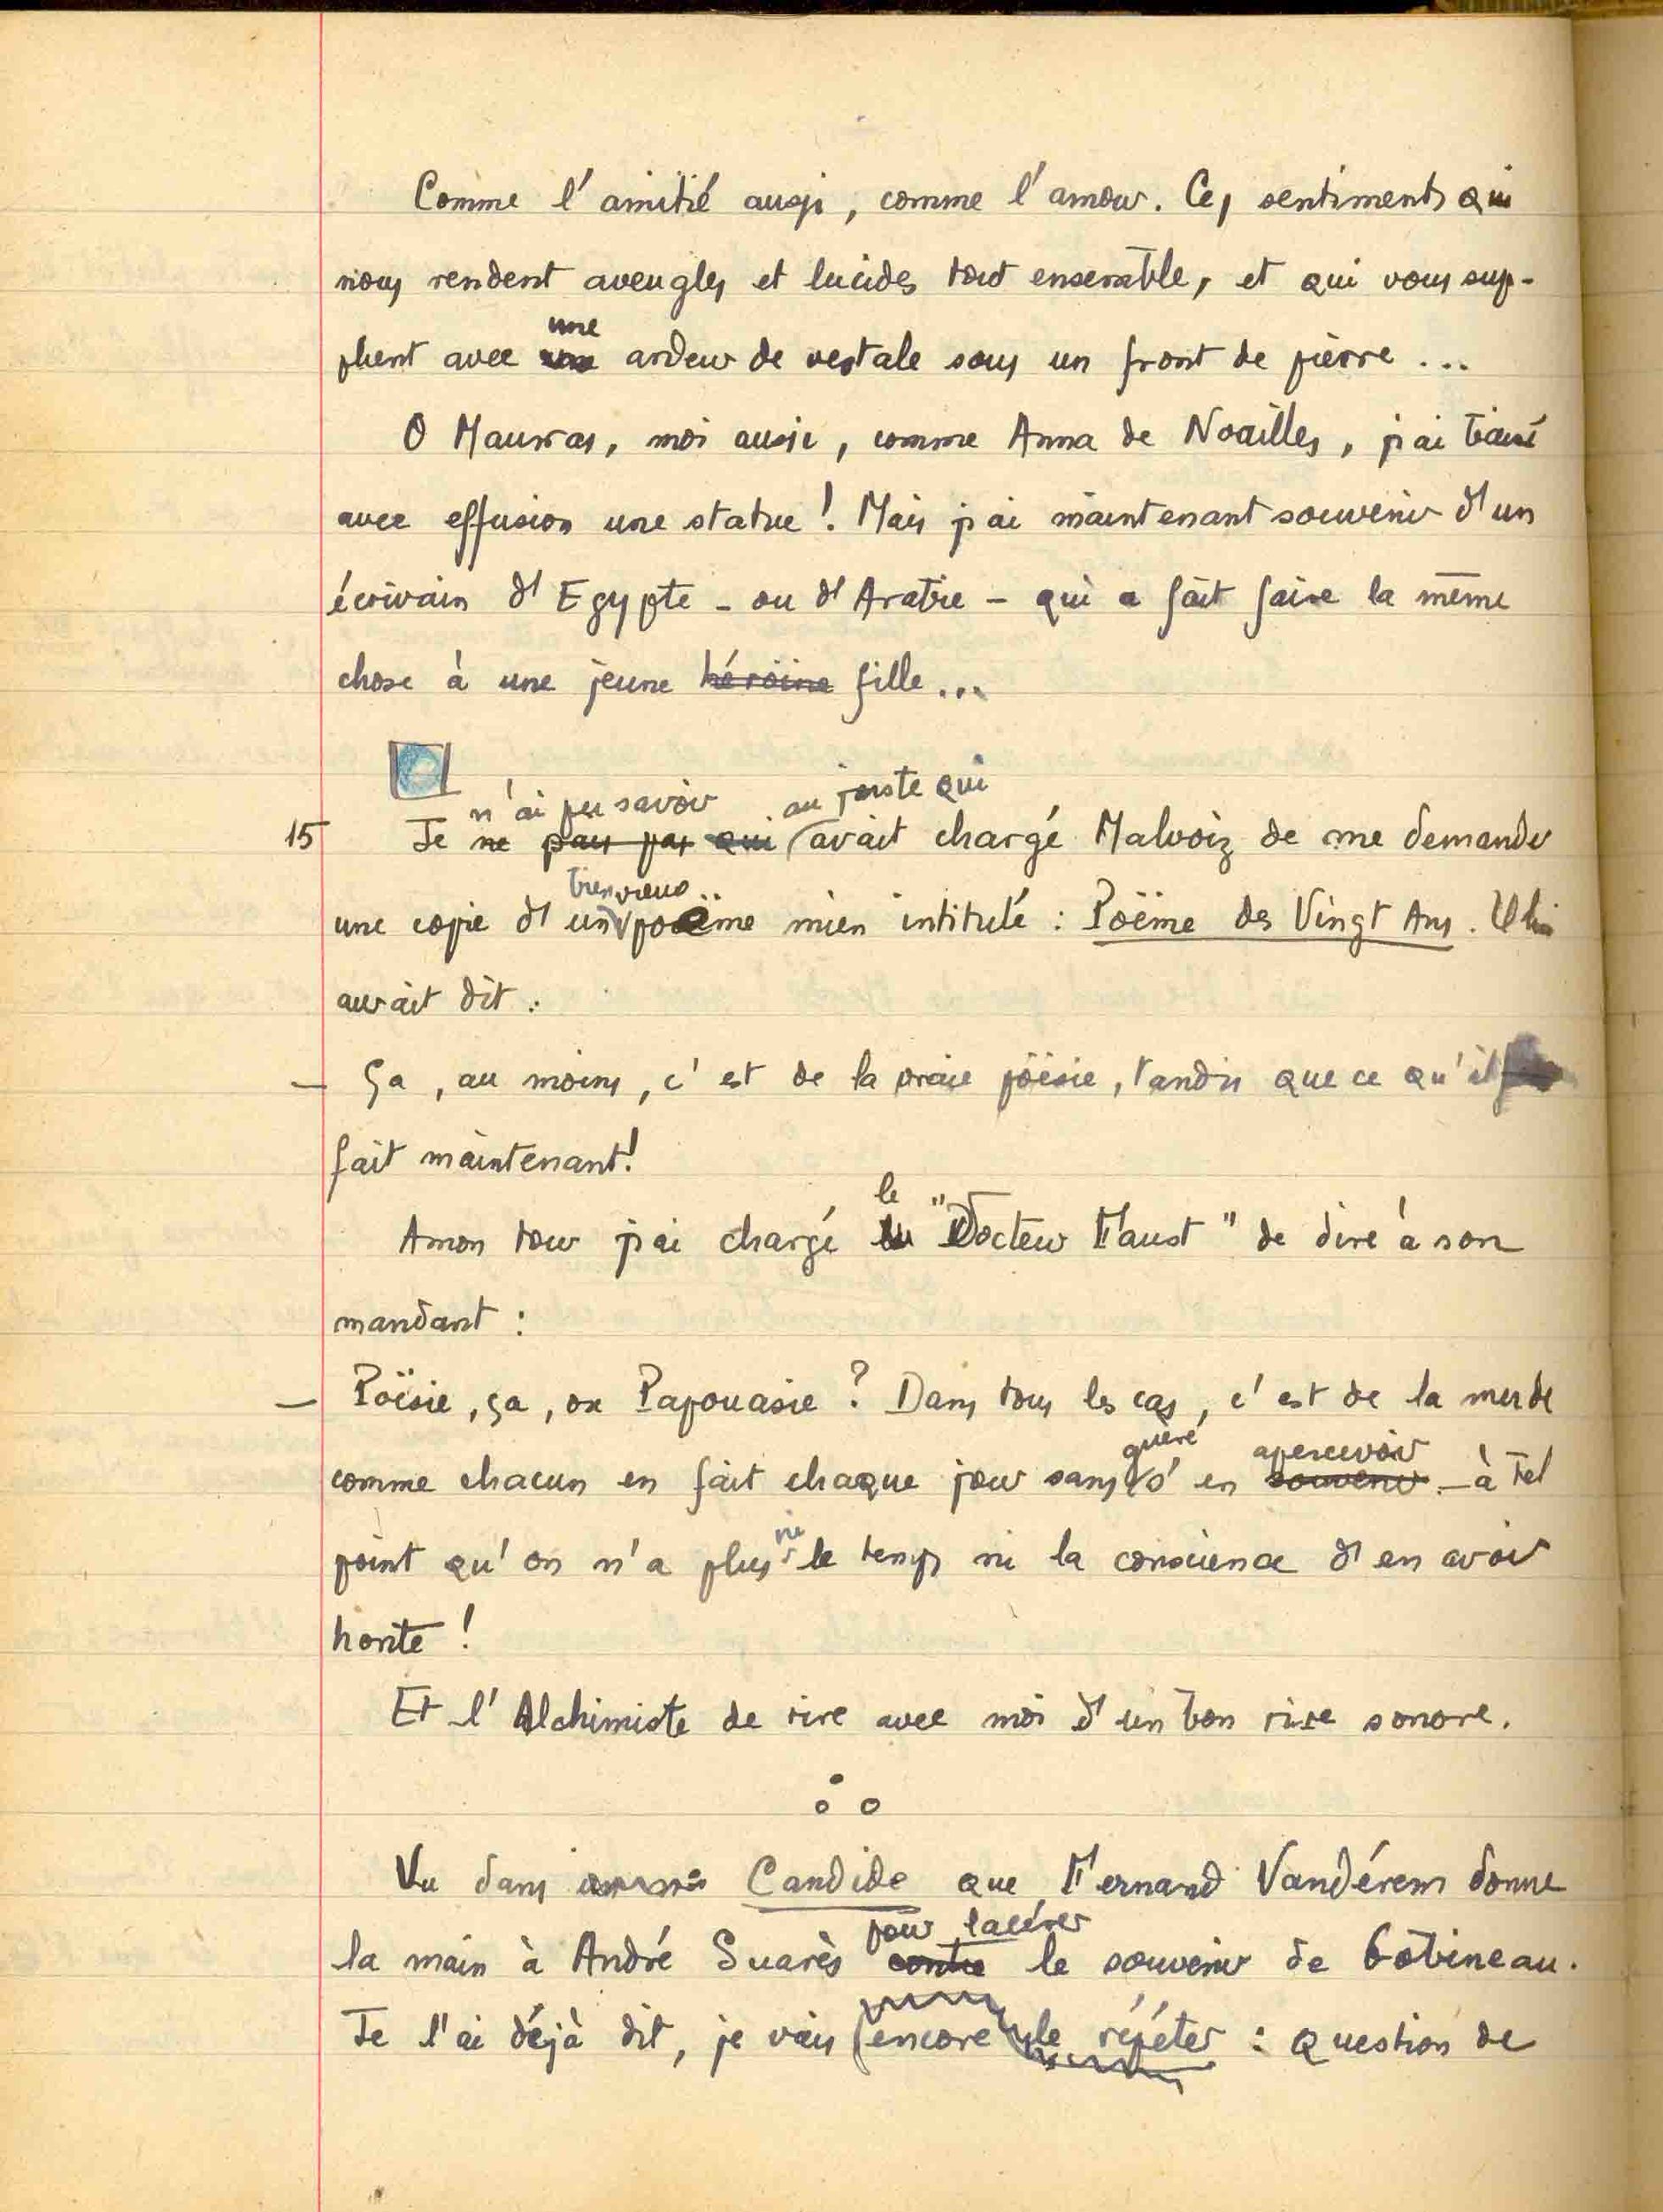 Comme l'amitié aussi, comme l'amour. Ces sentiments qui
nous rendent aveugles et lucides tout ensemble, et qui vous sup-
plient avec une ardeur de vestale sous un front de pierre ...
O Maurras, moi aussi, comme Anna de Noailles, j'ai
avec effusion une statue! Mais j'ai maintenant souvenir d'un
écrivain d'Egypte - ou d'Arabie - qui a fait faire la même
chose à une jeune héroïne fille...
n'ai pu savoir au juste qui
15 Je ne pas qui avait chargé Malvoiz de me demander
très vieux
une copie d'un poëme mien intitulé : Poëme des Vingt Ans. Il lui
aurait dit :
- Ça, au moins, c'est de la vraie poësie, tandis que ce qu'il
fait maintenant!
le
A mon tour j'ai chargé "Docteur Faust" de dire à son
mandant :
- Poësie, ça, ou Papouasie ? Dans tous les cas, c'est de la merde
guère apercevoir
comme chacun en fait chaque jour sans s'en souvenir - à tel
point qu'on n'a plus ni le temps ni la conscience d'en avoir
honte !
Et l'Alchimiste de rire avec moi d'un bon rire sonore.
Vu dans Candide que Fernand Vandérem donne
pour lacérer
la main à André Suarès contre le souvenir de Gobineau.
Je l'ai déjà dit, je vais encore le répéter : question de